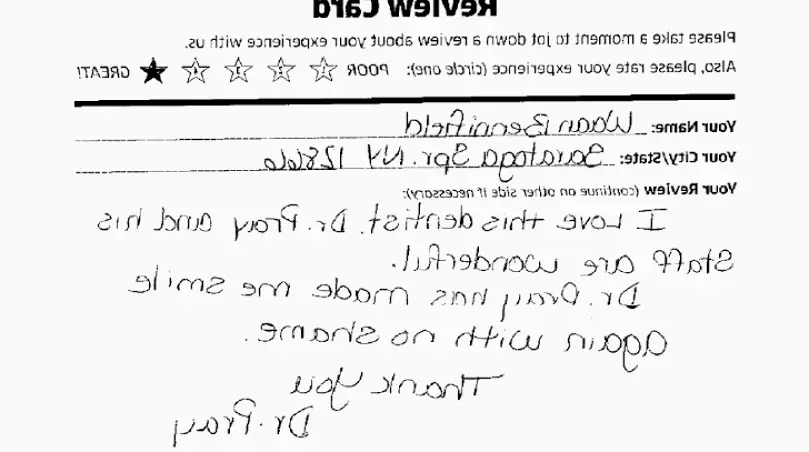 Review Card
Please take a moment to jot down a review about your experience with us.
Also, please rate your experience (circle one): POOR ☆ ☆ ☆ ☆ ★ GREAT!
Your Name: Bennifield
Your City/State: Saratoga Spr. NY 12866
Your Review (continue on other side if necessary):
I Love this dentist. Dr. Pray and his
Staff are wonderful.
Dr. Pray has made me smile
again with no shame.
Thank you
Dr. Pray